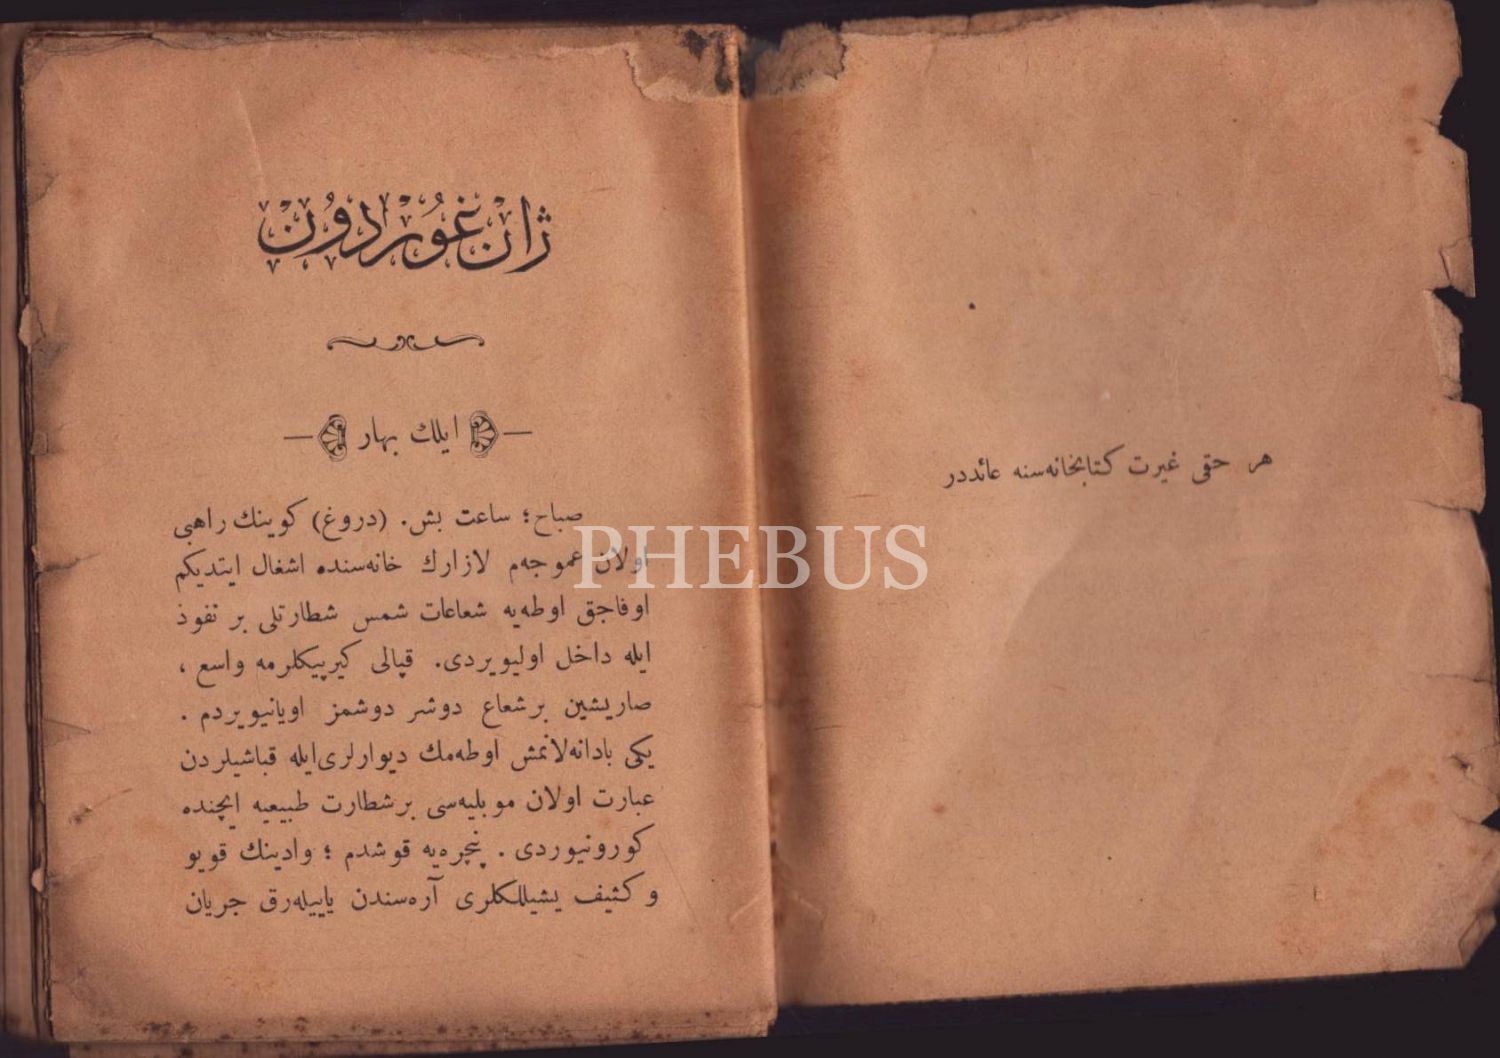 هر حقی غیرت کتابخانه‌سنه عائددر
ژان غوردون
ایلك بهار
صباح؛ ساعت بش. (دروغ) کوینك راهبی
اولان عموجه‌م لازارك خانه‌سنده اشغال ایتدیکم
اوفاجق اوطه‌یه شعاعات شمس شطارتلی بر نفوذ
ایله داخل اولیویردی. قپالی کیرپیکلرمه واسع ،
صاریشین برشعاع دوشر دوشمز اویانیویردم .
یکی بادانه‌لانمش اوطه‌مك دیوارلری ایله قباشیلردن
عبارت اولان موبلیه‌سی برشطارت طبیعیه ایچنده
کورونیوردی . پنچره‌یه قوشدم ؛ وادینك قویو
و کثیف یشیللکلری آره‌سندن یاییله‌رق جریان
PHEBUS